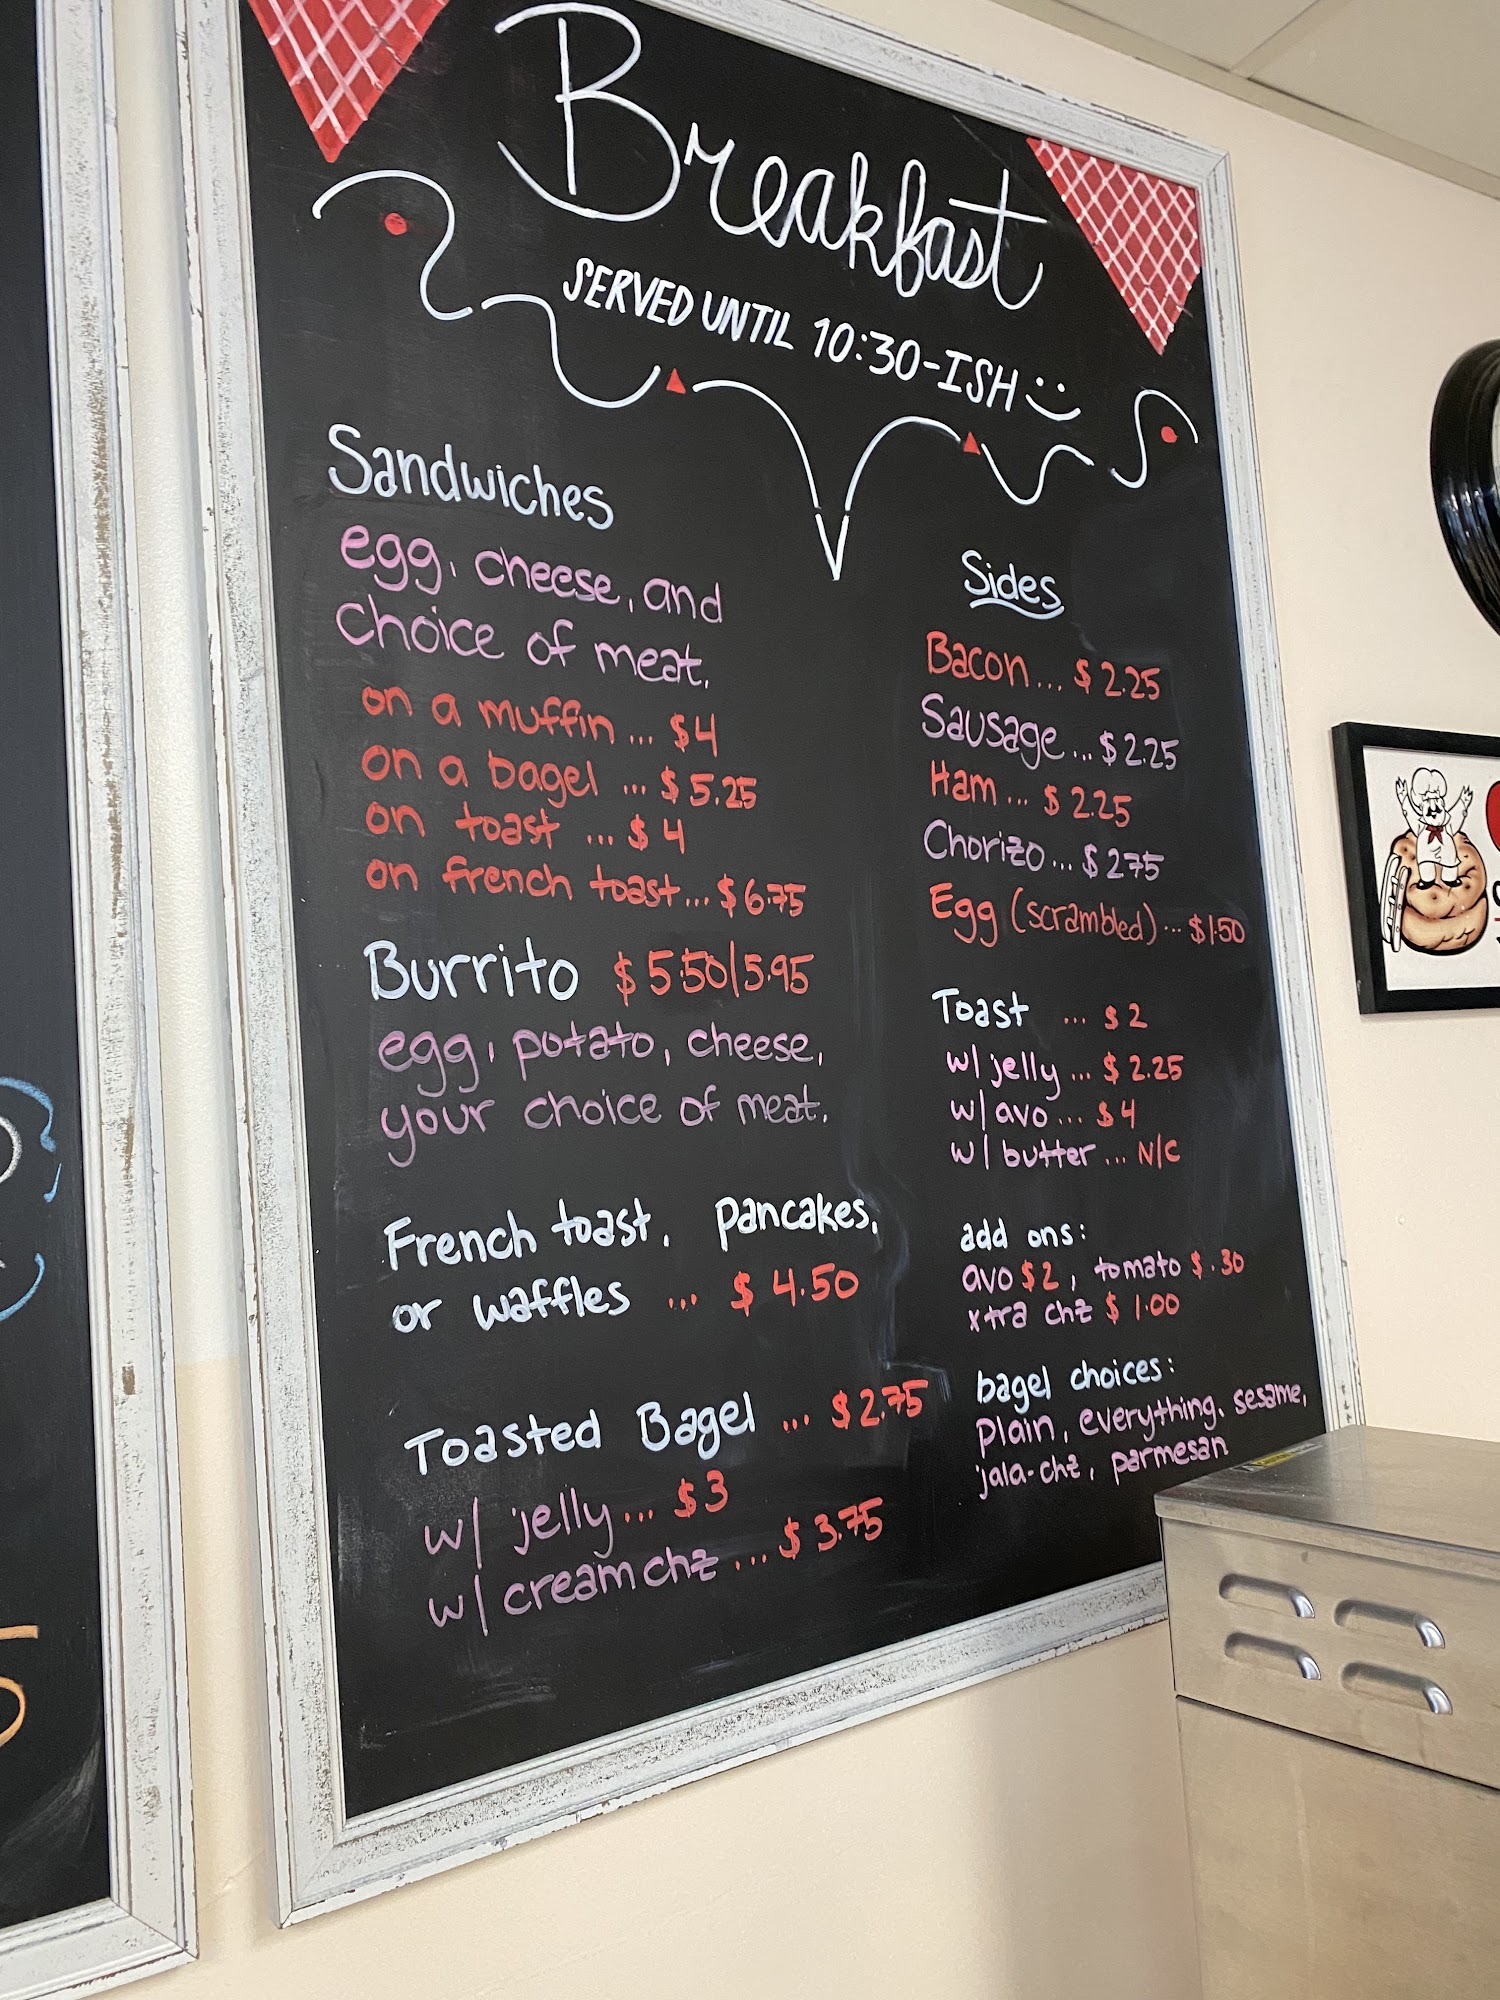 Breakfast
SERVED UNTIL 10:30-ISH
Sandwiches
egg, cheese, and
choice of meat.
on a muffin ... $4
on a bagel ... $5.25
on toast ... $4
on french toast... $6.75
Burrito $5.50/5.95
egg, potato, cheese,
your choice of meat.
French toast, pancakes,
or waffles ... $4.50
Toasted Bagel ... $2.75
w/ jelly ... $3
w/ cream chz ... $3.75
Sides
Bacon... $2.25
Sausage... $2.25
Ham... $2.25
Chorizo... $2.75
Egg (scrambled)... $1.50
Toast ... $2
w/ jelly ... $2.25
w/ avo ... $4
w/ butter ... N/C
add ons:
avo $2, tomato $.30
xtra chz $1.00
bagel choices:
plain, everything, sesame,
jala-chz, parmesan